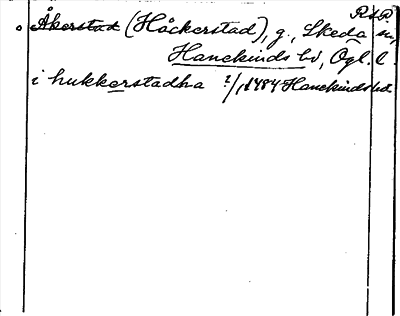 RAP
Åkerstad (Håckerstad), g., Skeda sn,
Hanekinds hd, Ögl. l.
i hukkerstadha 2/1 1484 Hanekinds hd